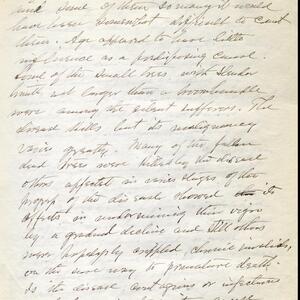 and some of them so many it would
have been somewhat difficult to count
them. Age appeared to have little
influence as a predisposing cause.
Some of the small trees, with slender
trunk not larger than a broomhandle
were among the silent sufferers. The
disease kills but its malignancy
varies greatly. Many of the fallen
dead trees were killed by the disease
others affected in various stages of the
progress of the disease showed its
effects in undermining their vigor
by a gradual decline and still others
were hopelessly crippled, chronic invalids,
on the sure way to premature death
Is the disease contagious or infectious